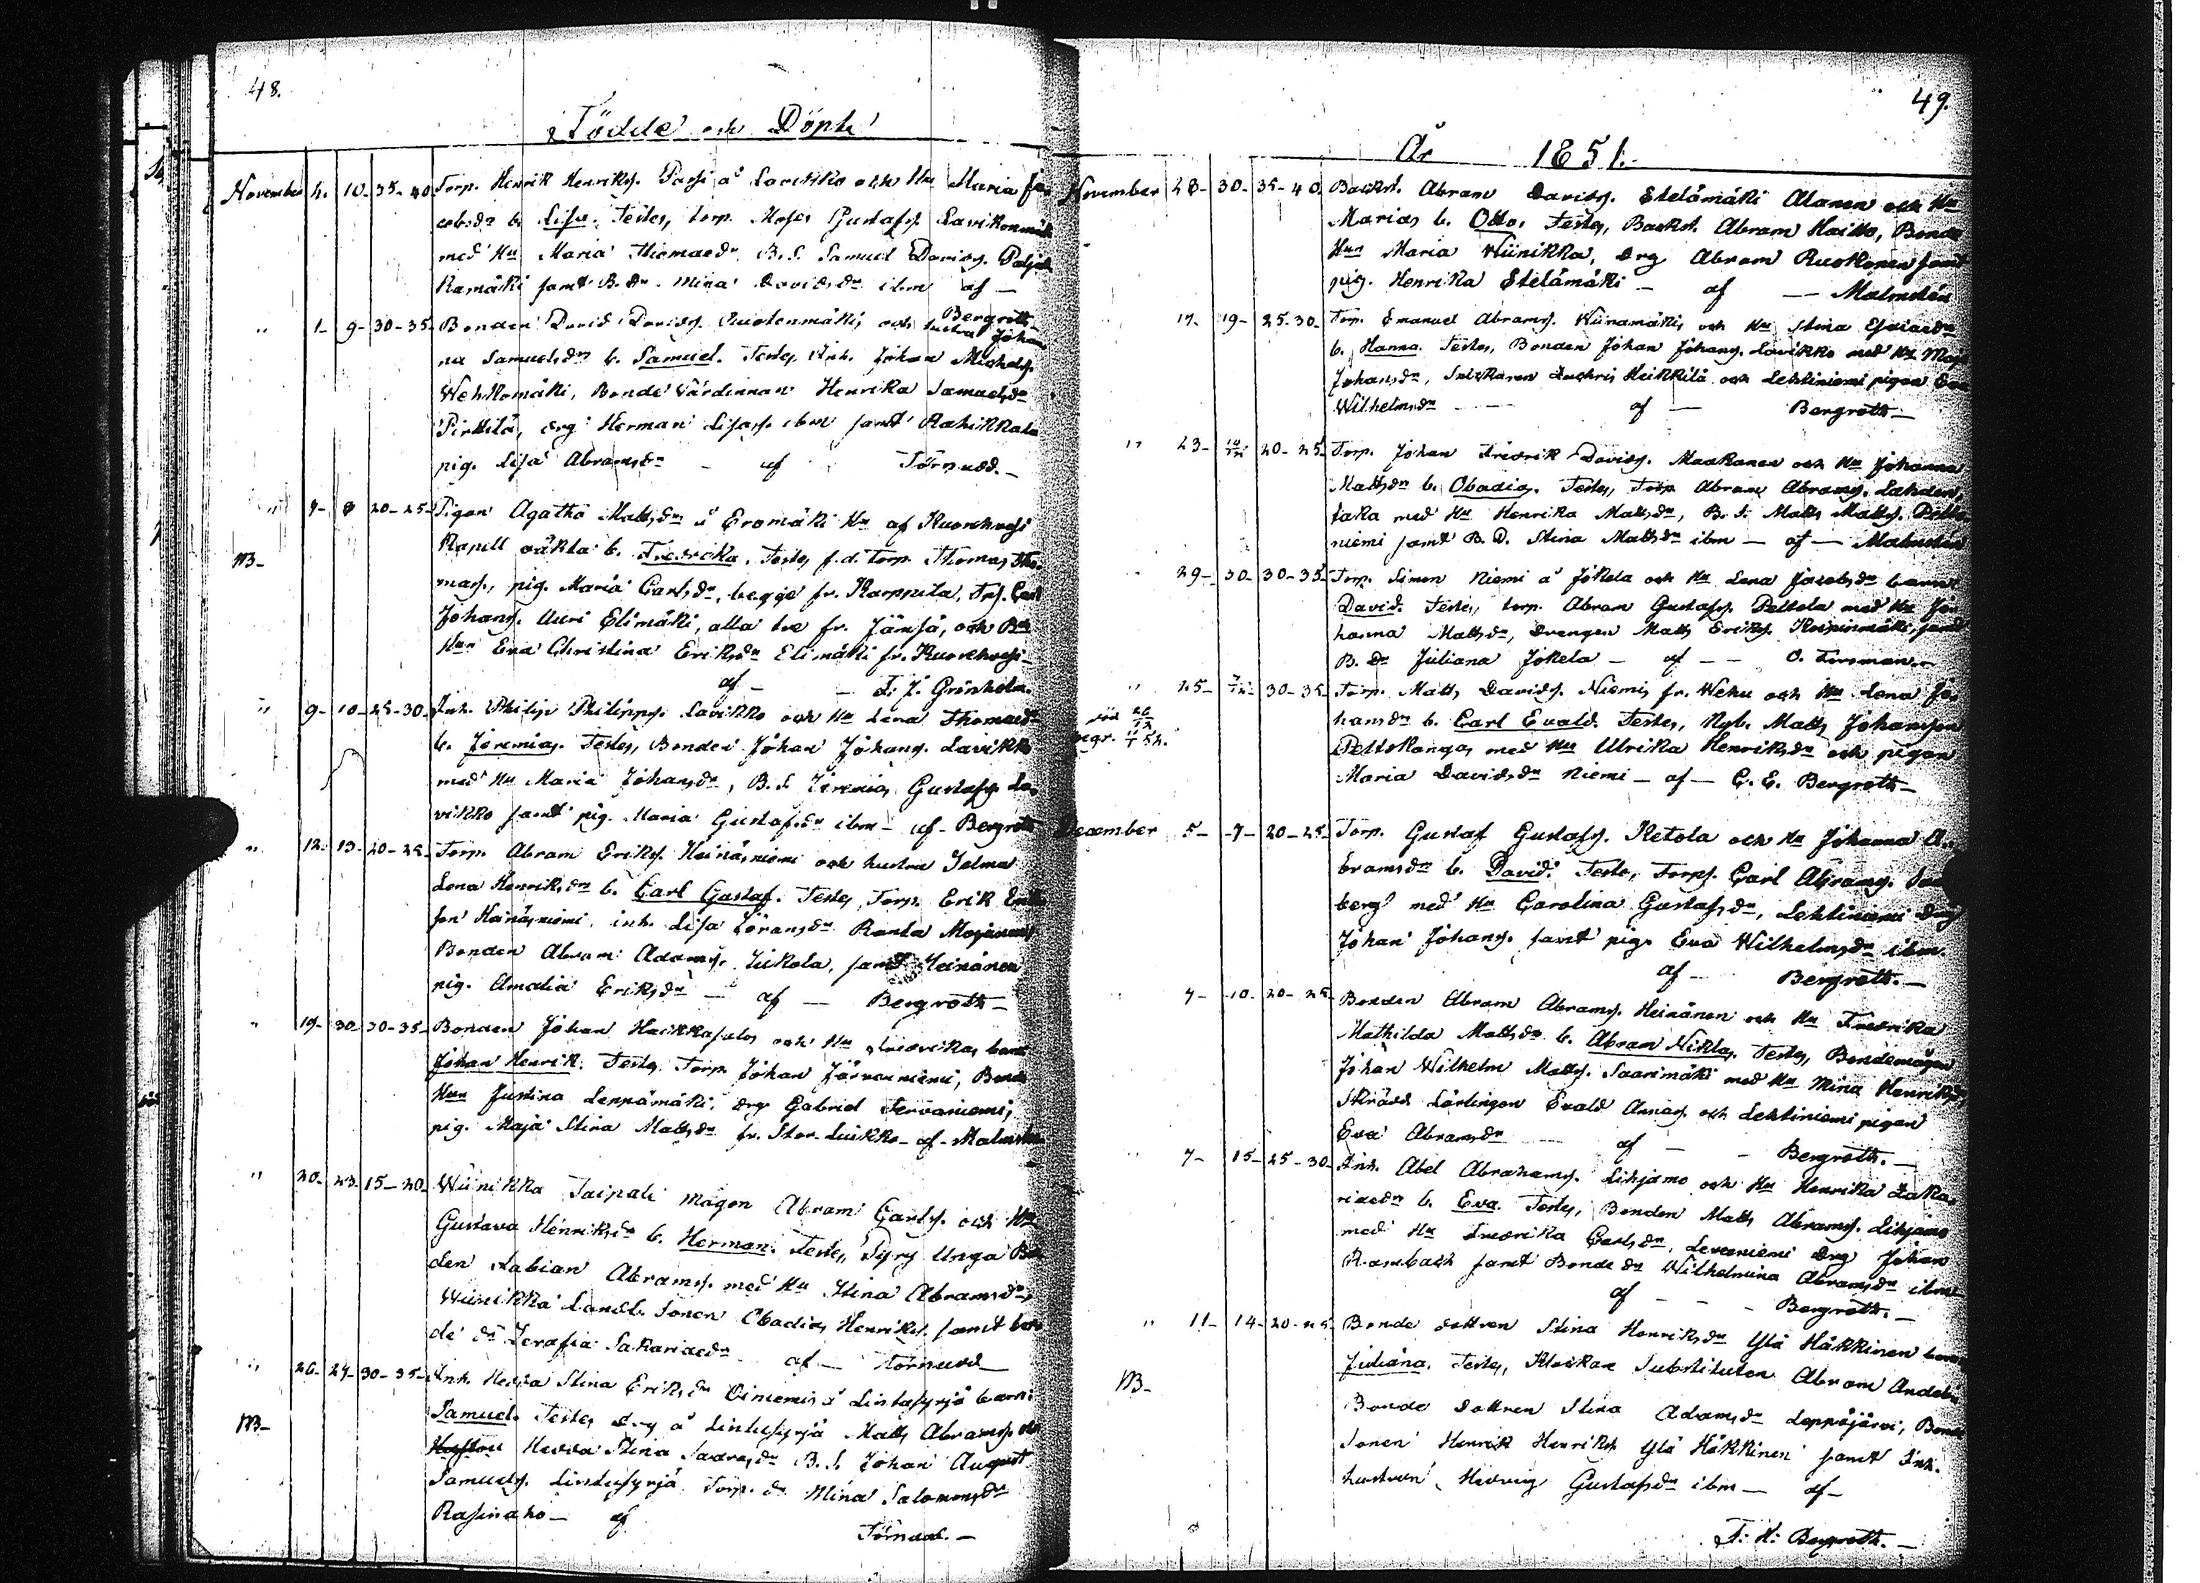 48.
Födde och Döpte
November 4. 10. 35-40 Torp. Henrik Henrikss. Passi å Lavikko och Hu Maria Ja
cobsdr b. Lisa. Testes, torp. Moses Gustafss. Lavikonmäk
med Hu Maria Thomaedr. B.S. Samuel Davids. 
kamäki samt B.dr Mina Davidsdr ibm af —
Bergroth
" 1- 9- 30-35 Bonden David Davidss. Ruotenmäki, och hustru Johan
na Samuelsdr b. Samuel. Testes, Inh. Johan Michelss.
Wehkomäki, Bonde Värdinnan Henrika Samuelsdr
Pirttilä, drg Herman Lisass. ibm samt Rahikkala
pig. Lisa Abramsdr — af Törnudd. —
" 7- 8 20-25 Pigan Agatha Mattsdr å Eromäki Hn af Kuorehvesi
NB- Kapell oäkta b. Fredrika. Testes f.d. torp. Thomas Tho-
mass., pig. Maria Carlsdr, begge fr. Karppila, Trs. Carl
Johans. Auri Elimäki, alla tre fr. Jämsä, och Bde
Hun Eva Christina Eriksdr Elimäki fr. Kuorehvesi-
af — — L. J. Grönholm.
" 9- 10- 25-30 Inh. Philip Philipps. Lavikko och Hu Lena Thomaedr
b. Jeremias. Testes, Bonden Johan Johans. Lavikko
med Hu Maria Johansdr, B.S. Jeremias Gustafss. La-
vikko samt pig. Maria Gustafsdr ibm — af — Bergroth
" 12- 13- 20-25 Torp. Abram Erikss. Heinäsniemi och hustru Selma
Lena Henriksdr b. Carl Gustaf. Testes, Torp. Erik Eriks
son Heinäsniemi, inh. Lisa Göransdr Ranta 
Bonden Abram Adams. Jukola, samt Heinänen
pig. Amalia Eriksdr — af — Bergroth —
" 19- 30- 30-35 Bonden Johan Haikkasalos och Hu Fredrikas barn
Johan Henrik. Testes, Torp. Johan Järvenniemi, Bonde
Hun Justina Leppämäki, drg Gabriel Tervaniemi,
pig. Maja Stina Mattsdr fr. Stor-Luikko — af — Malmsten
" 20- 23- 15-20 Wiinikka Taipale mågen Abram Carlss. och Hu
Gustava Henriksdr b. Herman. Testes, Syry Unga Bon
den Fabian Abrams. med Hu Stina Abramsdr,
Wiinikka Landb. Sonen Obadias Henrikss. samt bon
de dr Serafia Sakariaedr af — Törnudd
" 26- 27- 30-35 Inh. Hedda Stina Eriksdr Oiniemis å Lintusyrjä barn:
NB- Samuel. Testes Drg å Lintusyrjä Matts Abramss. och
Hedda Stina B.S. Johan August
Samuels. Lintusyrjä Torp. dr Mina Salomonsdr
Rasinaho — af Törnudd. —
49.
År 1851.
November 28- 30- 35-40 Backst. Abram Davids. Etelämäki Alanen och Hu
Marias b. Otto. Testes, Backst. Abram Haitto, Bonde
Hun Maria Wiinikka, drg Abram Ruokonen samt
pig. Henrika Etelämäki — af — Malmsten
17- 19- 25-30 Torp. Emanuel Abramss. Wiinamäki, och Hu Stina Esaiaedr
b. Hanna. Testes, Bonden Johan Johans. Lavikko med Hu Maja
Johansdr, Zachris Heikkilä och Lehtiniemi pigan Eva
Wilhelmsdr — af — Bergroth —
" 23- 10/12 20-25 Torp. Johan Fredrik Davids. Maakanen och Hu Johanna
Mattsdr b. Obadias. Testes, Torp. Abram Abramss. Lahden-
taka med Hu Henrika Mattsdr, B.S. Matts Mattss. 
niemi samt B.D. Stina Mattsdr ibm — af — Malmsten
" 29- 30- 30-35 Torp. Simon Niemi å Jokela och Hu Lena Jacobsdr barn
David. Testes, torp. Abram Gustafss. Peltola med Hu Jo-
hanna Mattsdr, drengen Matts Erikss. samt
B. dr Juliana Jokela — af — O. Forsman.
" 25- 7/12 30-35 Torp. Matts Davids. Niemi, fr. Wehu och Hu Lena Jo-
död 26/12
begr. 11/1 52.
hansdr b. Carl Evald. Testes, Nyb. Matts Johansson
Peltokangas med Hu Ulrika Henriksdr och pigan
Maria Davidsdr Niemi — af — C. E. Bergroth —
December 5- 7- 20-25 Torp. Gustaf Gustafss. Ketola och Hu Johanna A-
bramsdr b. David. Testes, Torps. Carl Abramss.
berg med Hu Carolina Gustafsdr, Lehtiniemi Drg
Johan Johans. samt pig. Eva Wilhelmsdr ibm.
af — Bergroth. —
" 7- 10- 20-25 Bonden Abram Abramss. Heinänen och Hu Fredrika
Mathilda Mattsdr b. Abram Niklas. Testes, Bondemågen
Johan Wilhelm Mattss. Saarimäki med Hu Mina Henriksdr,
Skrädd. Lärlingen Evald Annass. och Lehtiniemi pigan
Eva Abramsdr — af — Bergroth. —
" 7- 15- 25-30 Inh. Abel Abrahams. Lihjamo och Hu Henrika Zaka-
riaedr b. Eva. Testes, Bonden Matts Abramss. Lihjamo
med Hu Fredrika Carlsdr, Leveeniemi Drg Johan
Rambach samt Bonde dr Wilhelmina Abramsdr ibm
af — — Bergroth. —
" 11- 14- 20-25 Bonde dottren Stina Henriksdr Ylä Häkkinen barn
NB- Juliana. Testes, Klockare Substituten Abram Andelin
Bonde dottren Stina Adamsdr Leppäjärvi, Bonde
Sonen Henrik Henrikss. Ylä Häkkinen samt Inh.
hustrun Hedvig Gustafsdr ibm — af —
F. H. Bergroth. —